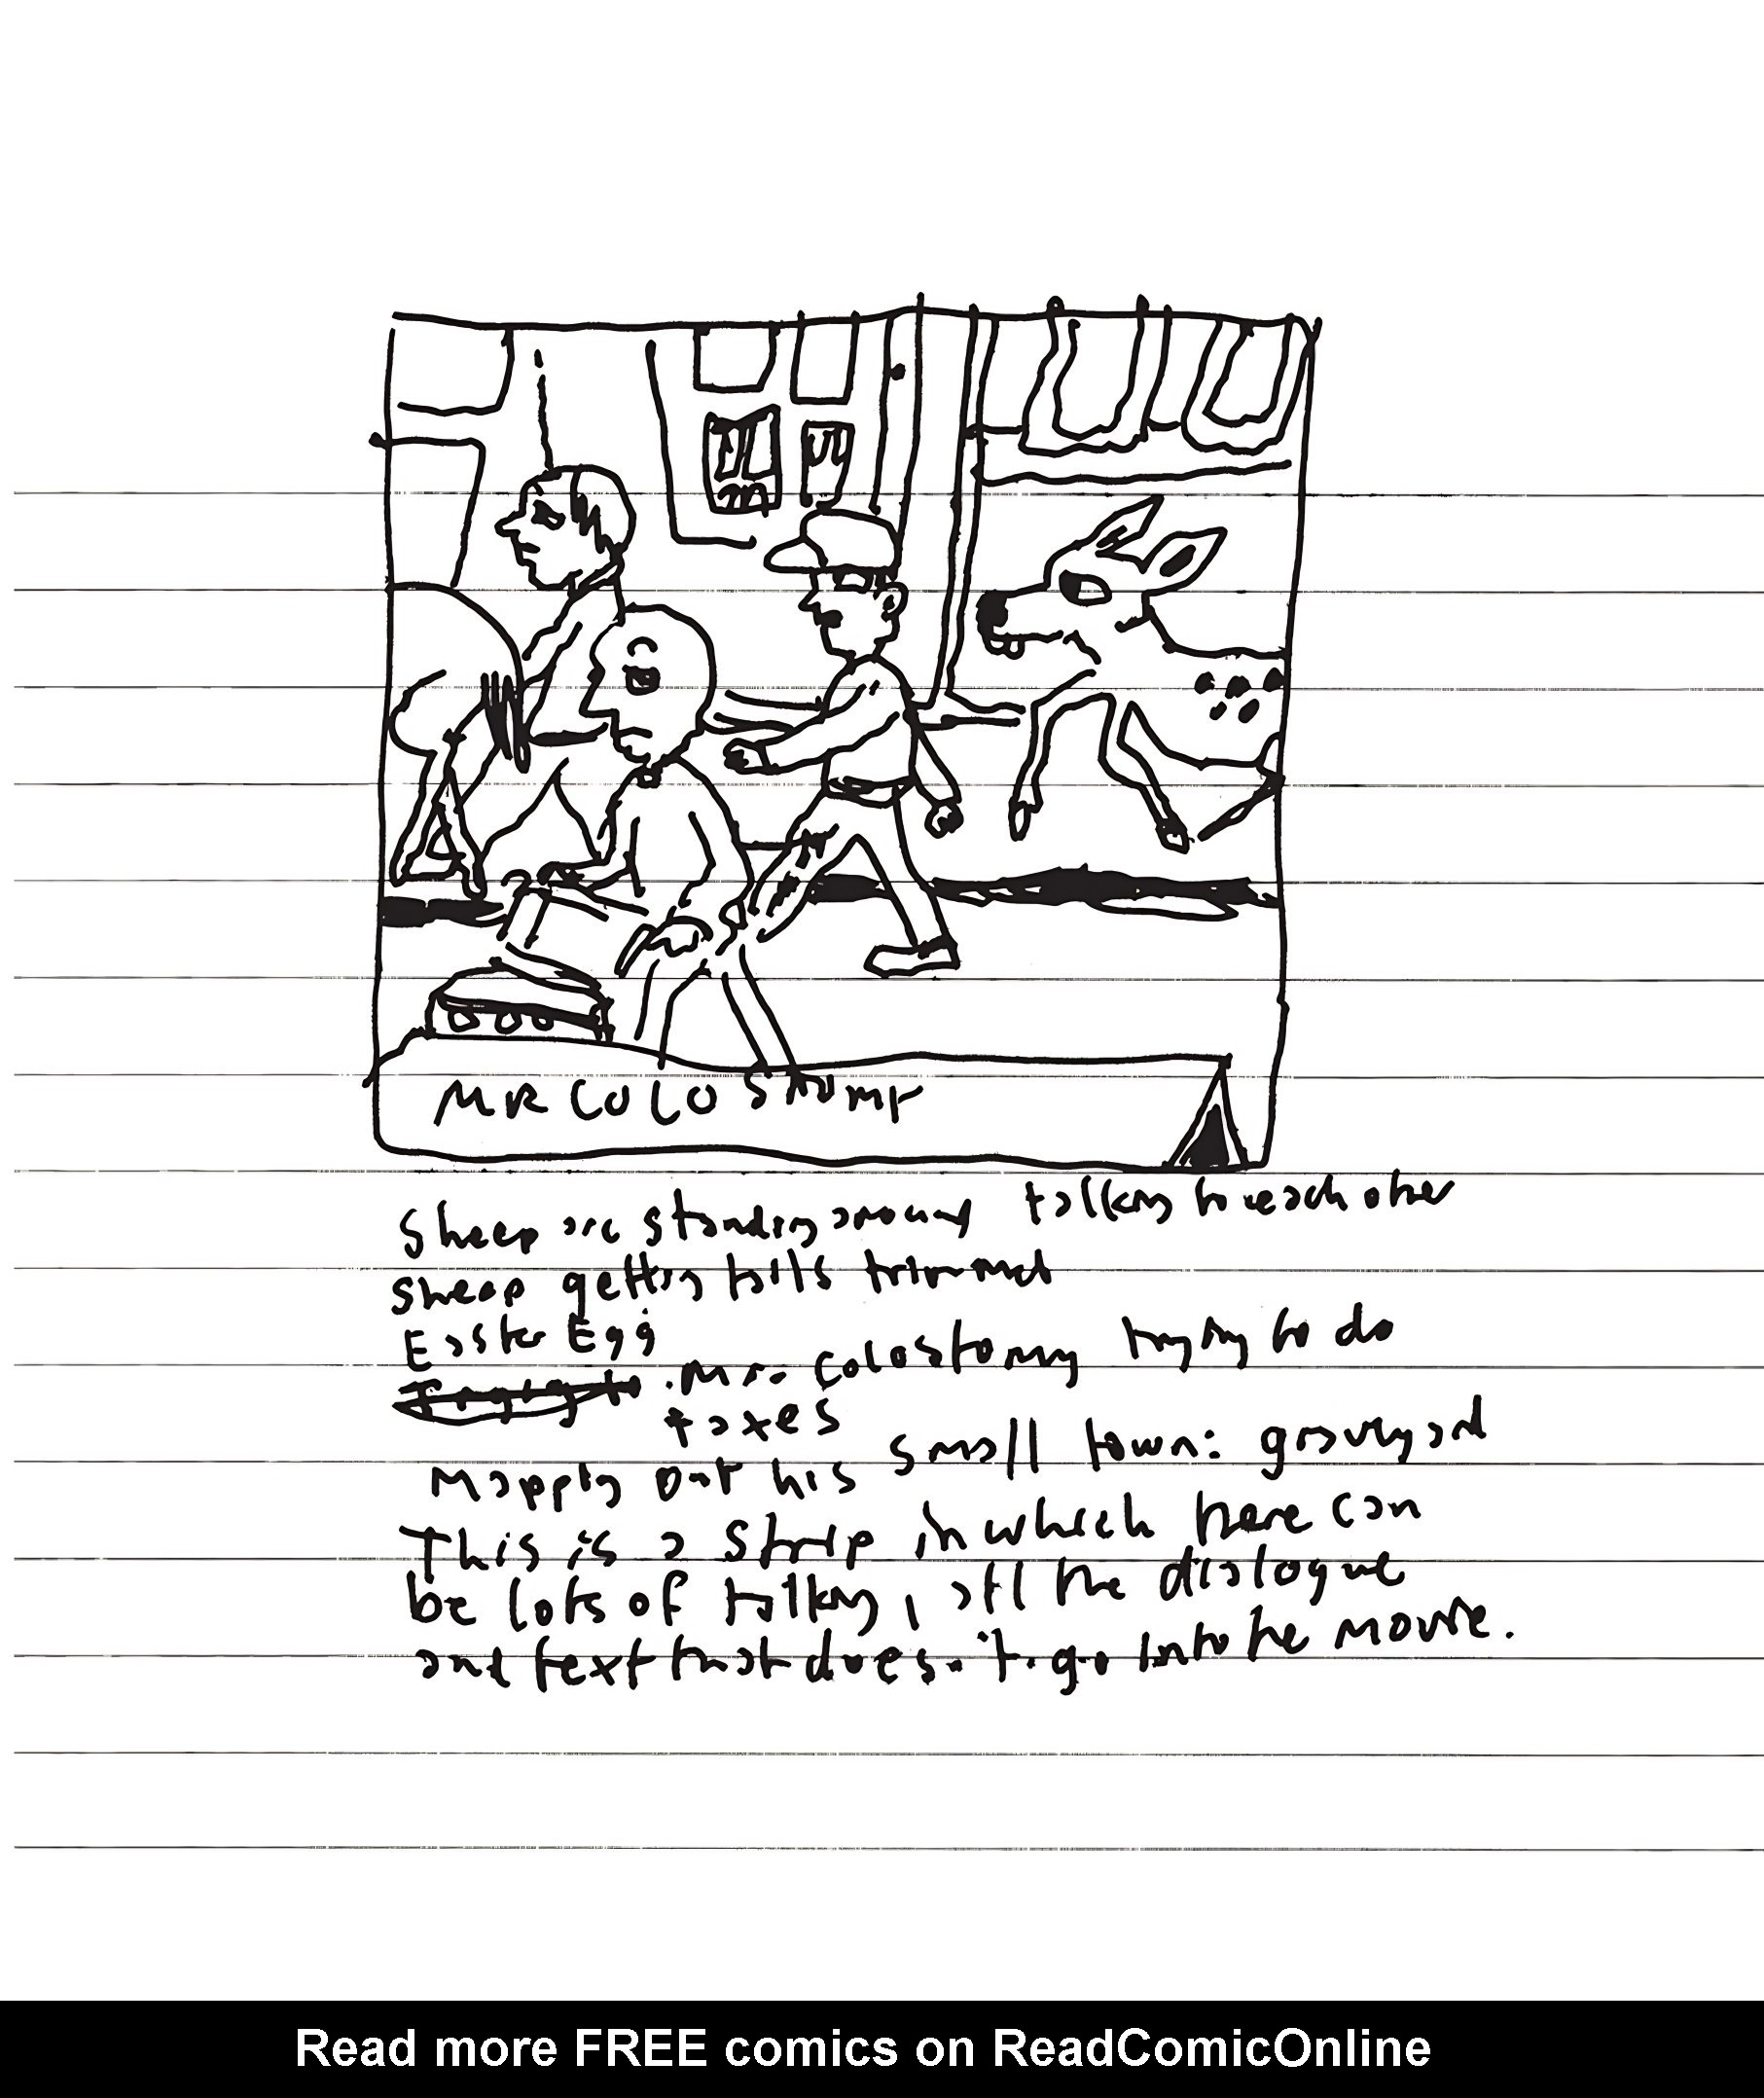 MR COLOSTOMY
Sheep are standing around talking to each other
Sheep getting tails trimmed
Easter Egg
. Mr. Colostomy trying to do
taxes
Mapping out his small town: graveyard
This is a strip in which there can
be lots of talking, all the dialogue
and text that doesn't go into the movie.
Read more FREE comics on ReadComicOnline